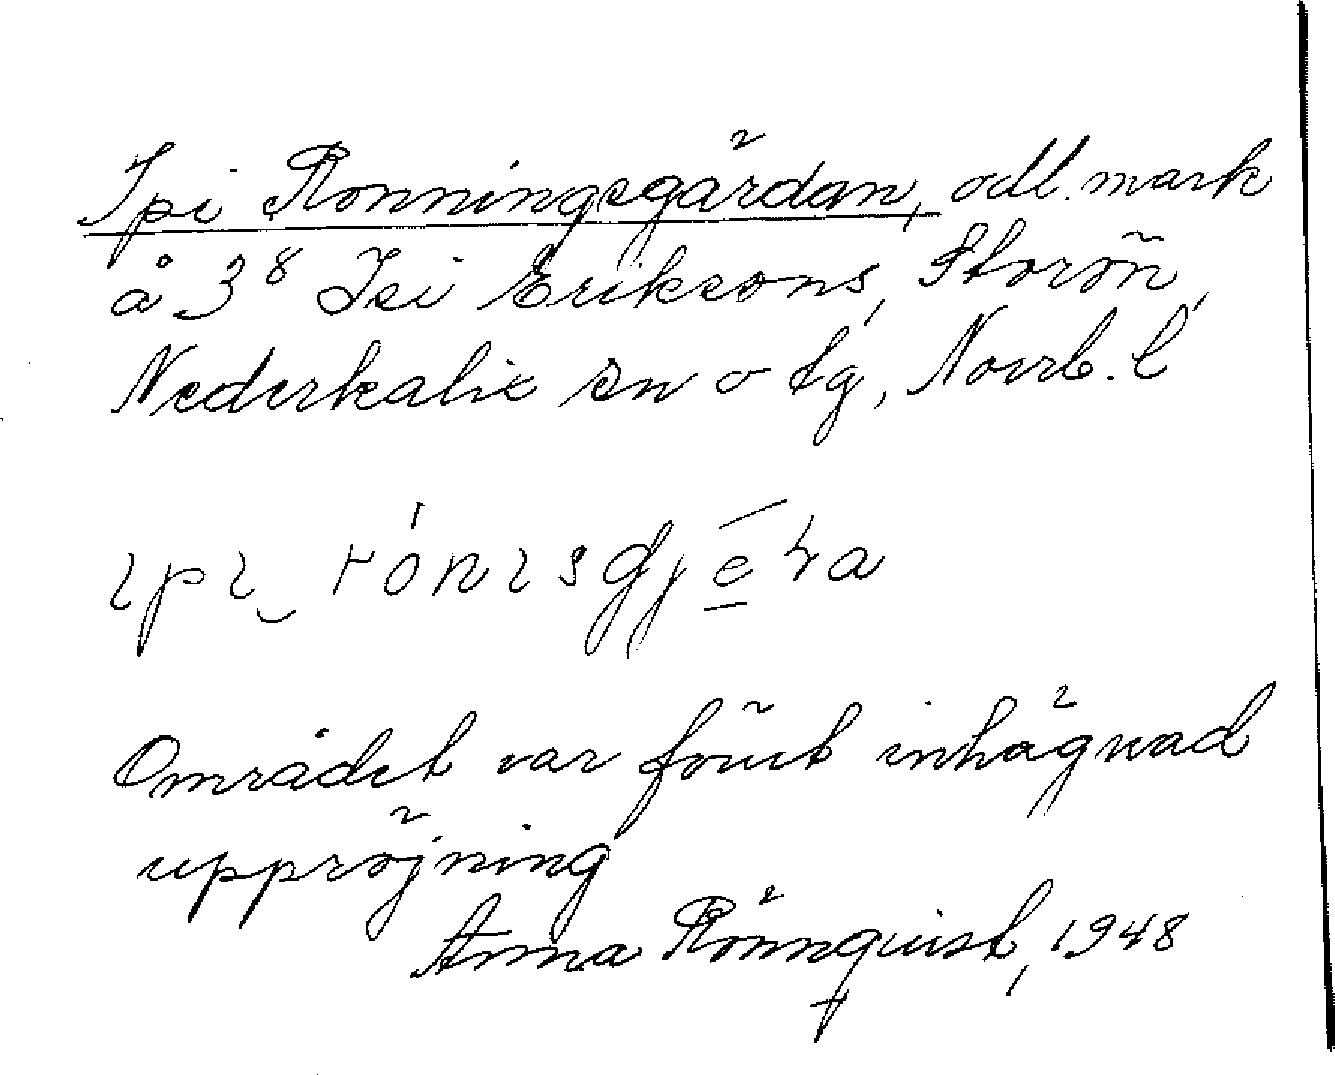 Ipi Ronningsgärdan, odl. mark
å 3⁸ Isi Eriksons, Storön,
Nederkalix sn o tg, Norrb. l
ɩpɩ‿ rónɩsgjé̱ra
Området var förut inhägnad
uppröjning
Anna Rönnquist, 1948